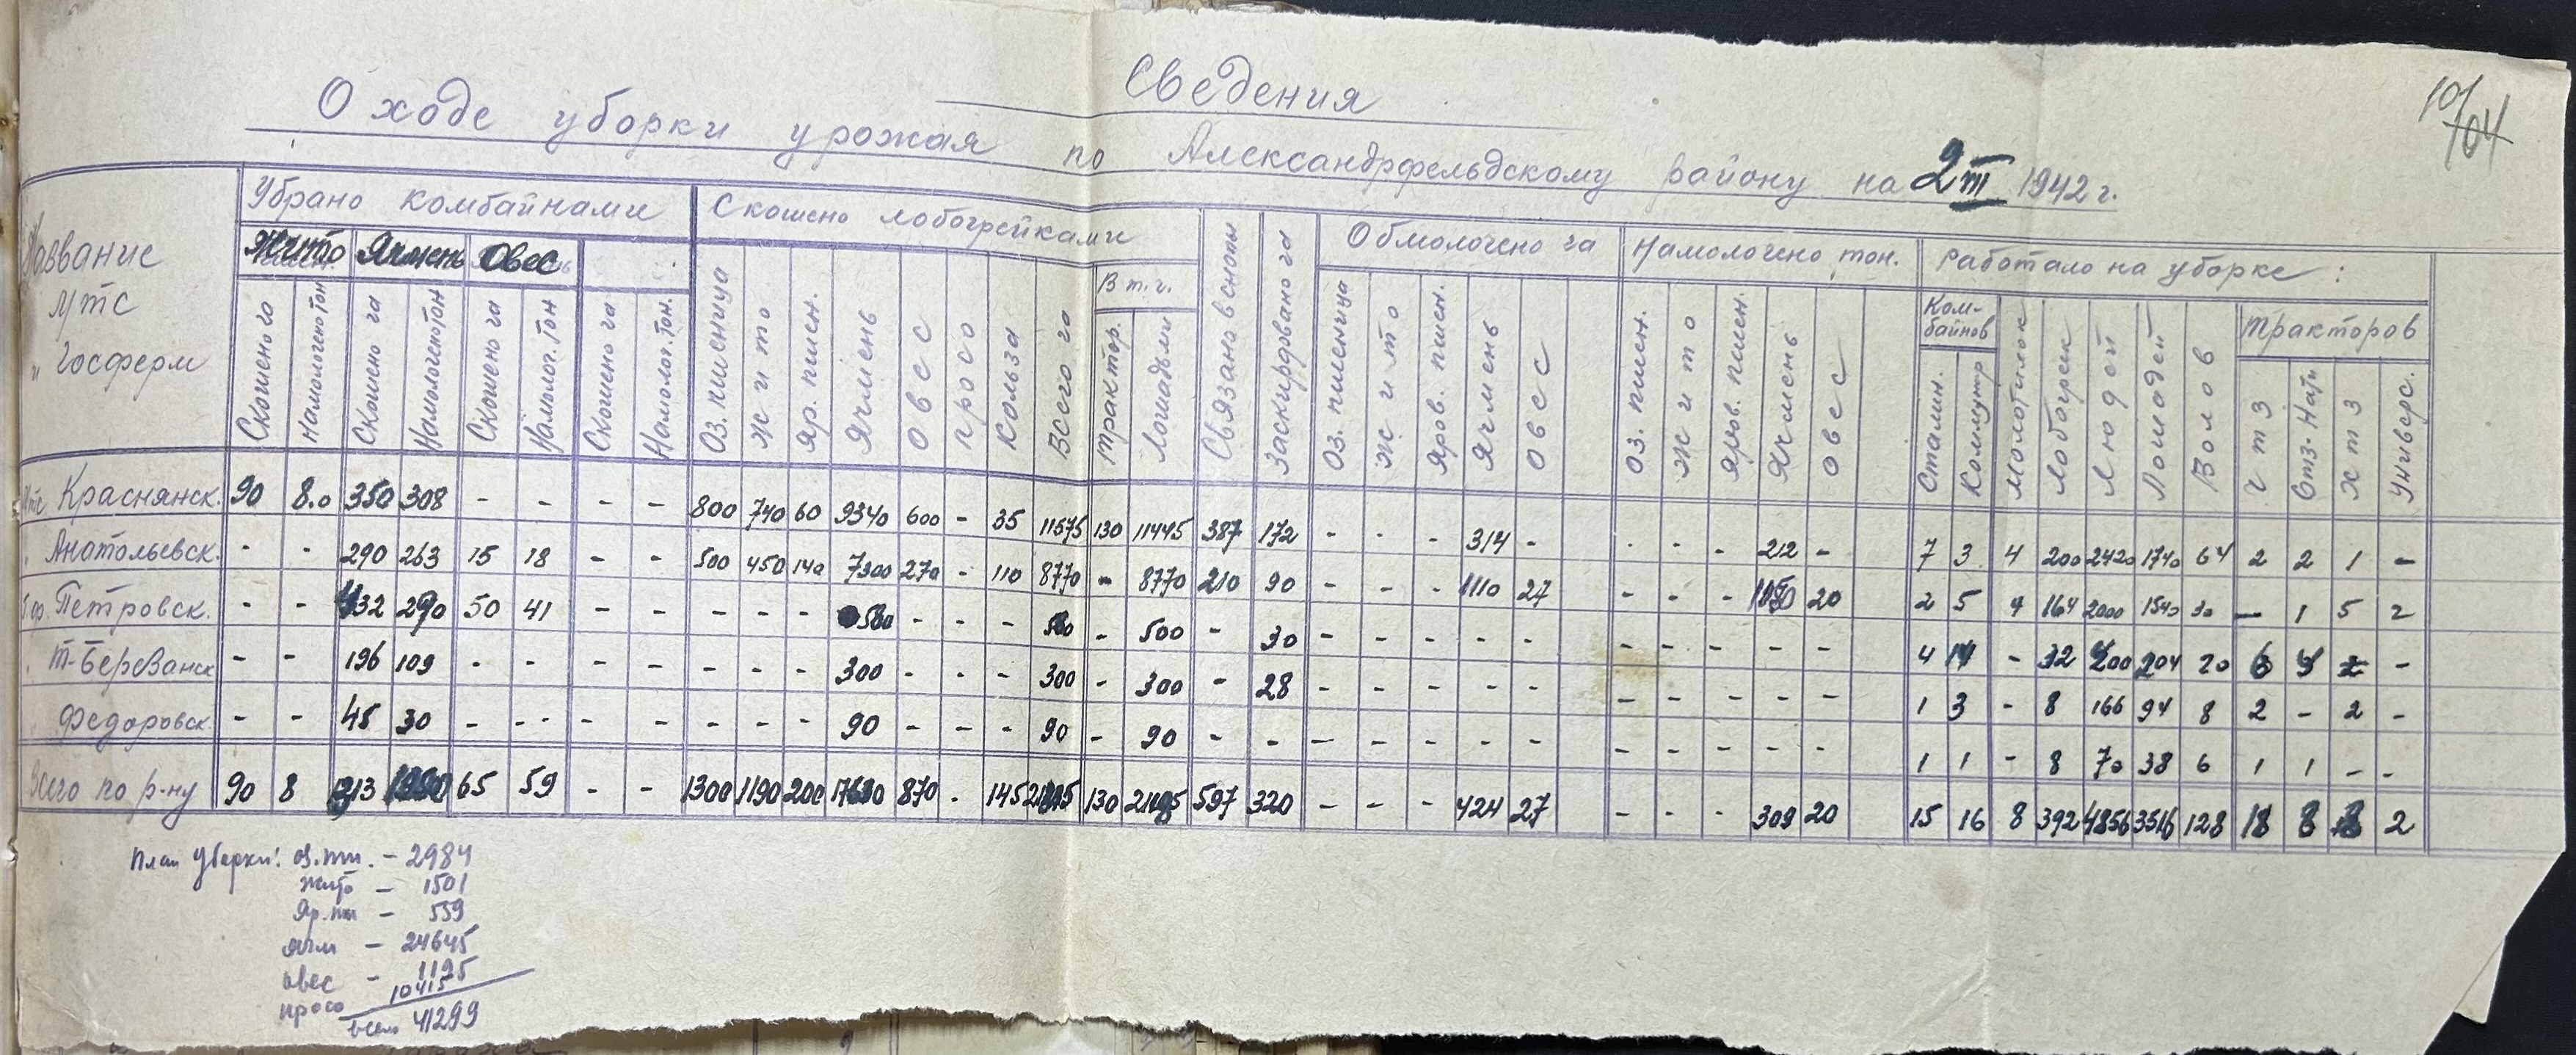 Сведения
О ходе уборки урожая по Александрфельдскому району на 2 VIII 1942 г.
10/104
Название МТС и Госферм
Убрано комбайнами
Скошено лобогрейками
Связано в снопы
Заскирдовано га
Обмолочено га
Намолочено тон.
Работало на уборке:
Жито Ячмень Овес
В т.ч.
Комбайнов
Тракторов
Скошено га Намолочено тон Скошено га Намолочено тон Скошено га Намолот. тон Скошено га Намолот. тон.
Оз. пшеница Жито Яр. пшен. Ячмень Овес Просо Кользa Всего га Трактор. Лошадьми
Оз. пшеница Жито Яров. пшен. Ячмень Овес
Оз. пшен. Жито Яров. пшен. Ячмень Овес
Сталин. Коммунар Молотилок Лобогреек Людей Лошадей Волов ЧТЗ СТЗ-Нати ХТЗ Универс.
МТС Краснянск. 90 8.0 350 308 - - - - 800 740 60 9340 600 - 35 11575 130 11445 387 172 - - - 314 - - - - 212 - 7 3 4 200 2420 1740 64 2 2 1 -
" Анатольевск. - - 290 263 15 18 - - 500 450 140 7300 270 - 110 8770 - 8770 210 90 - - - 1110 27 - - - 20 2 5 4 164 2000 1540 30 - 1 5 2
Г.ф. Петровск. - - 332 290 50 41 - - - - - 500 - - - 500 - 500 - 30 - - - - - - - - - - 4 - 32 200 204 20 6 -
" Т-Березанск - - 196 109 - - - - - - - 300 - - - 300 - 300 - 28 - - - - - - - - - - 1 3 - 8 166 94 8 2 - 2 -
" Федоровск. - - 45 30 - - - - - - - 90 - - - 90 - 90 - - - - - - - - - - - - 1 1 - 8 70 38 6 1 1 - -
Всего по р-ну 90 8 1213 65 59 - - 1300 1190 200 870 - 145 130 597 320 - - - 424 27 - - - 309 20 15 16 8 392 4856 3516 128 8 2
План уборки: оз. пш. - 2984
жито - 1501
Яр. пш - 559
ячм - 24645
овес - 1195
просо 10415
всего 41299